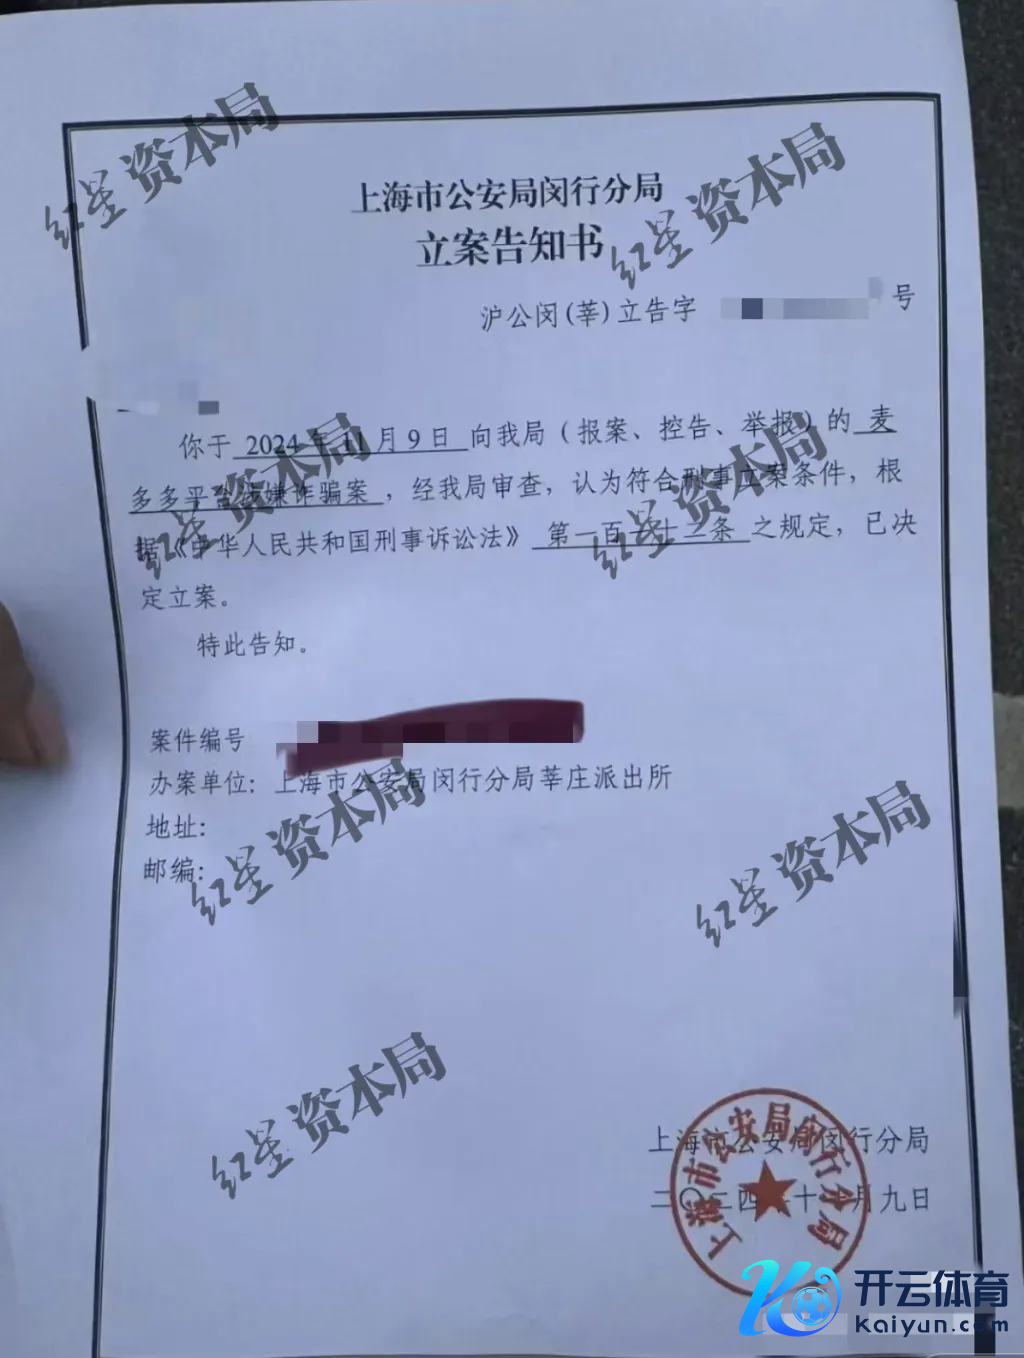 上海市公安局闵行分局
立案告知书
沪公闵(莘)立告字 号
你于 2024年11月9日 向我局（报案、控告、举报）的 麦
多多平台涉嫌诈骗案，经我局审查，认为符合刑事立案条件，根
据《中华人民共和国刑事诉讼法》第一百一十二条 之规定，已决
定立案。
特此告知。
案件编号
办案单位：上海市公安局闵行分局莘庄派出所
地址：
邮编：
上海市公安局闵行分局
二〇二四年十一月九日
上海市公安局闵行分局
红星资本局
红星资本局
红星资本局
红星资本局
红星资本局
红星资本局
红星资本局
开云体育
Kaiyun.com